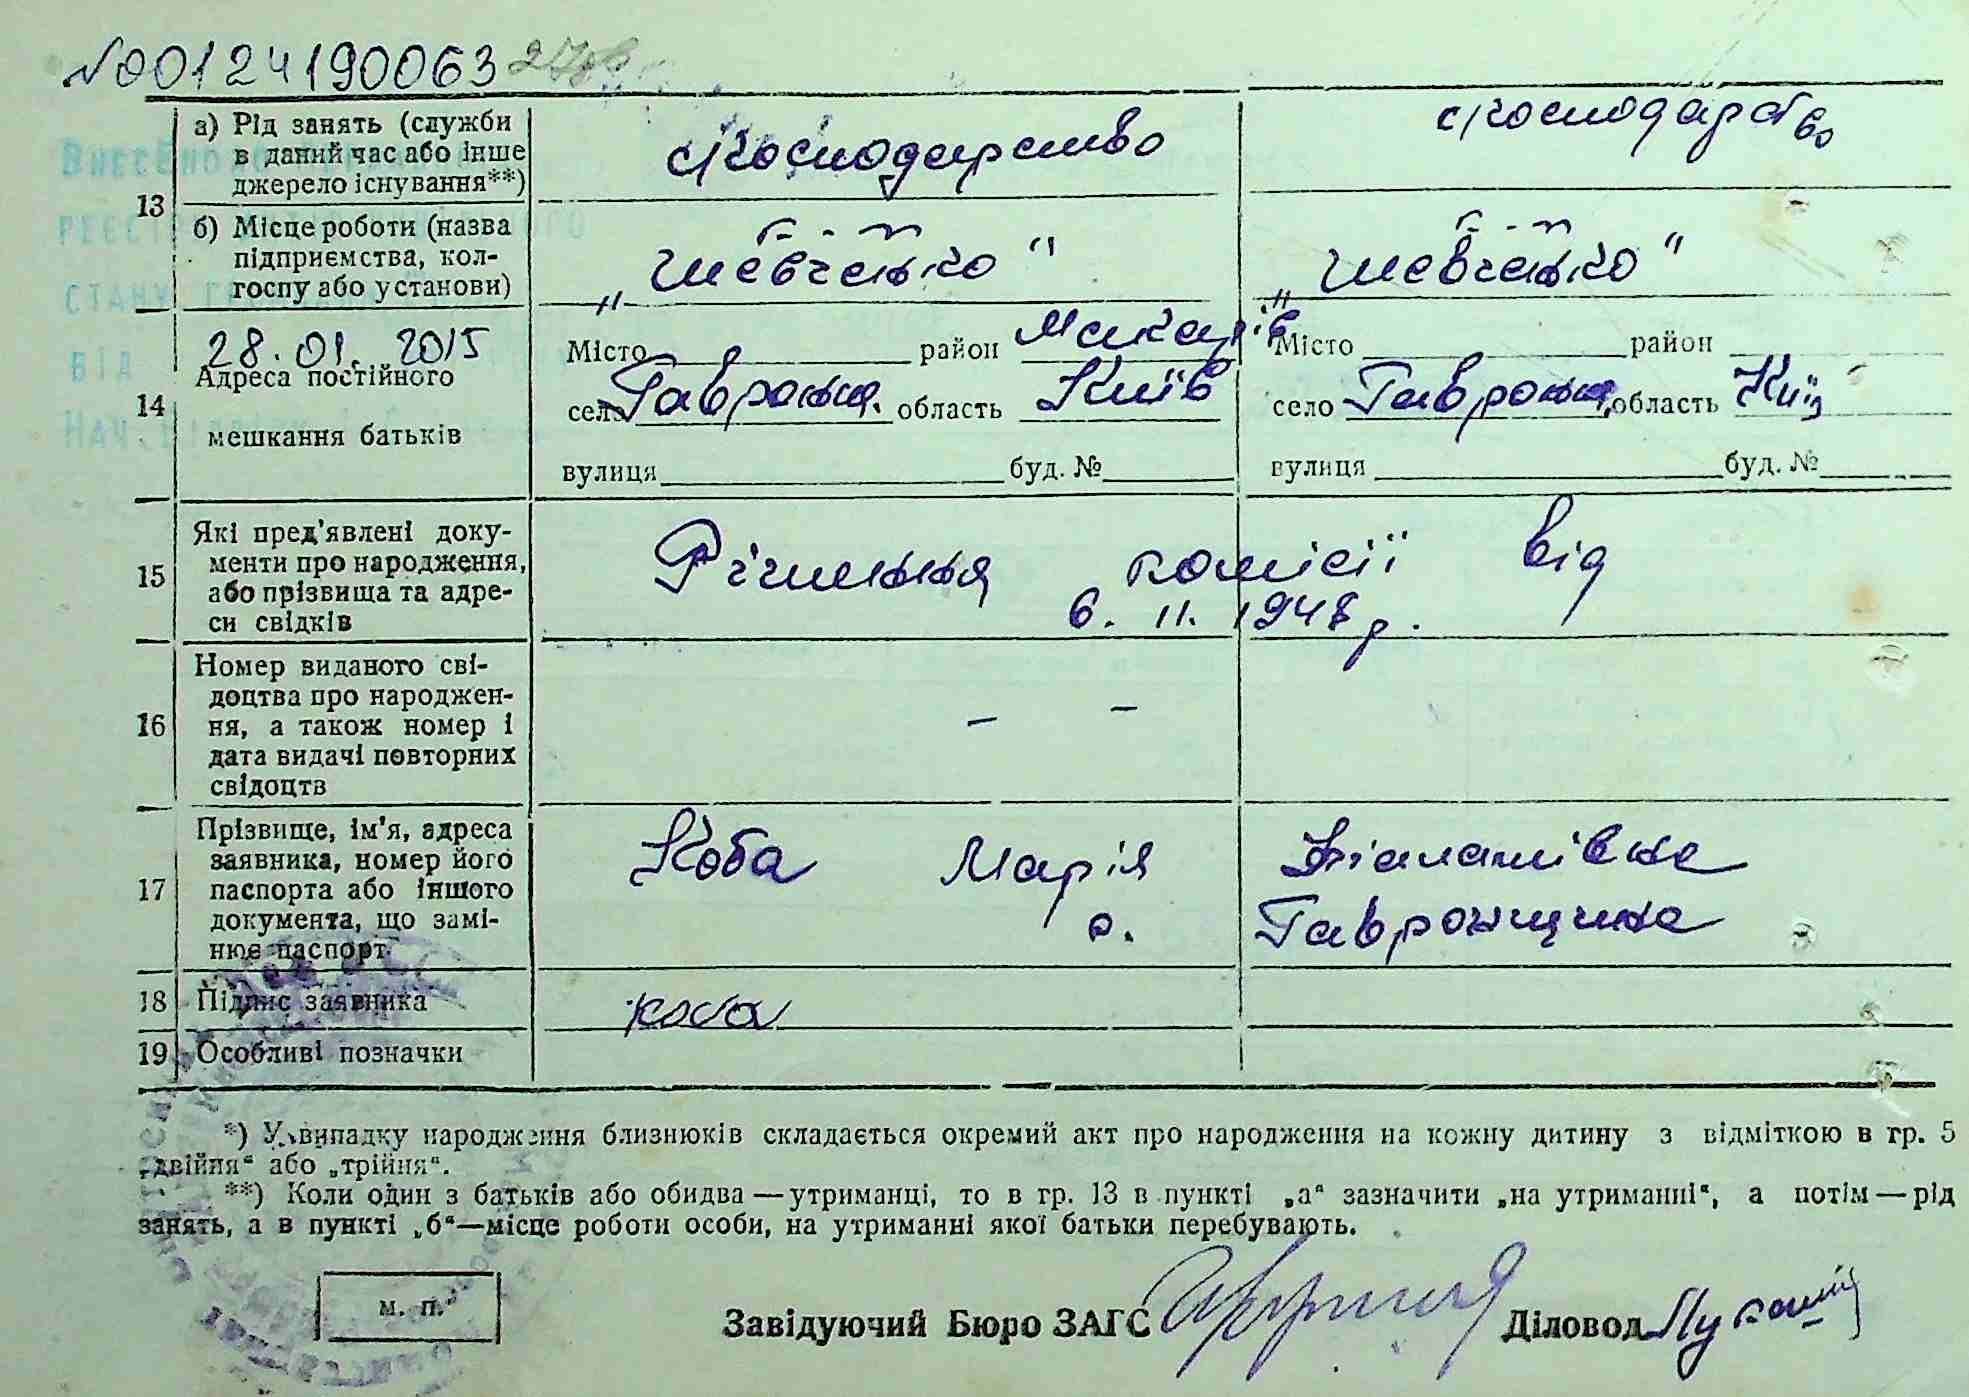 №00124190063
13 а) Рід занять (служби в даний час або інше джерело існування**)
с/господарство
с/господарство
б) Місце роботи (назва підприємства, колгоспу або установи)
„Шевченко"
„Шевченко"
Внесено до Державного
реєстру актів цивільного
стану громадян
від 28.01.2015
Нач. відділу
14 Адреса постійного мешкання батьків
Місто район Макарів
село Гавронщ. область Київ
вулиця буд. №
Місто район
село Гавронщ. область Київ
вулиця буд. №
15 Які пред'явлені документи про народження, або прізвища та адреси свідків
Рішення комісії від
6. II. 1948 р.
16 Номер виданого свідоцтва про народження, а також номер і дата видачі повторних свідоцтв
– –
17 Прізвище, ім'я, адреса заявника, номер його паспорта або іншого документа, що замінює паспорт
Коба Марія
с. Гавронщина
18 Підпис заявника
Коба
19 Особливі позначки
*) У випадку народження близнюків складається окремий акт про народження на кожну дитину з відміткою в гр. 5
„двійня“ або „трійня“.
**) Коли один з батьків або обидва — утриманці, то в гр. 13 в пункті „а“ зазначити „на утриманні“, а потім — рід
занять, а в пункті „б“—місце роботи особи, на утриманні якої батьки перебувають.
м. п.
Завідуючий Бюро ЗАГС
Діловод